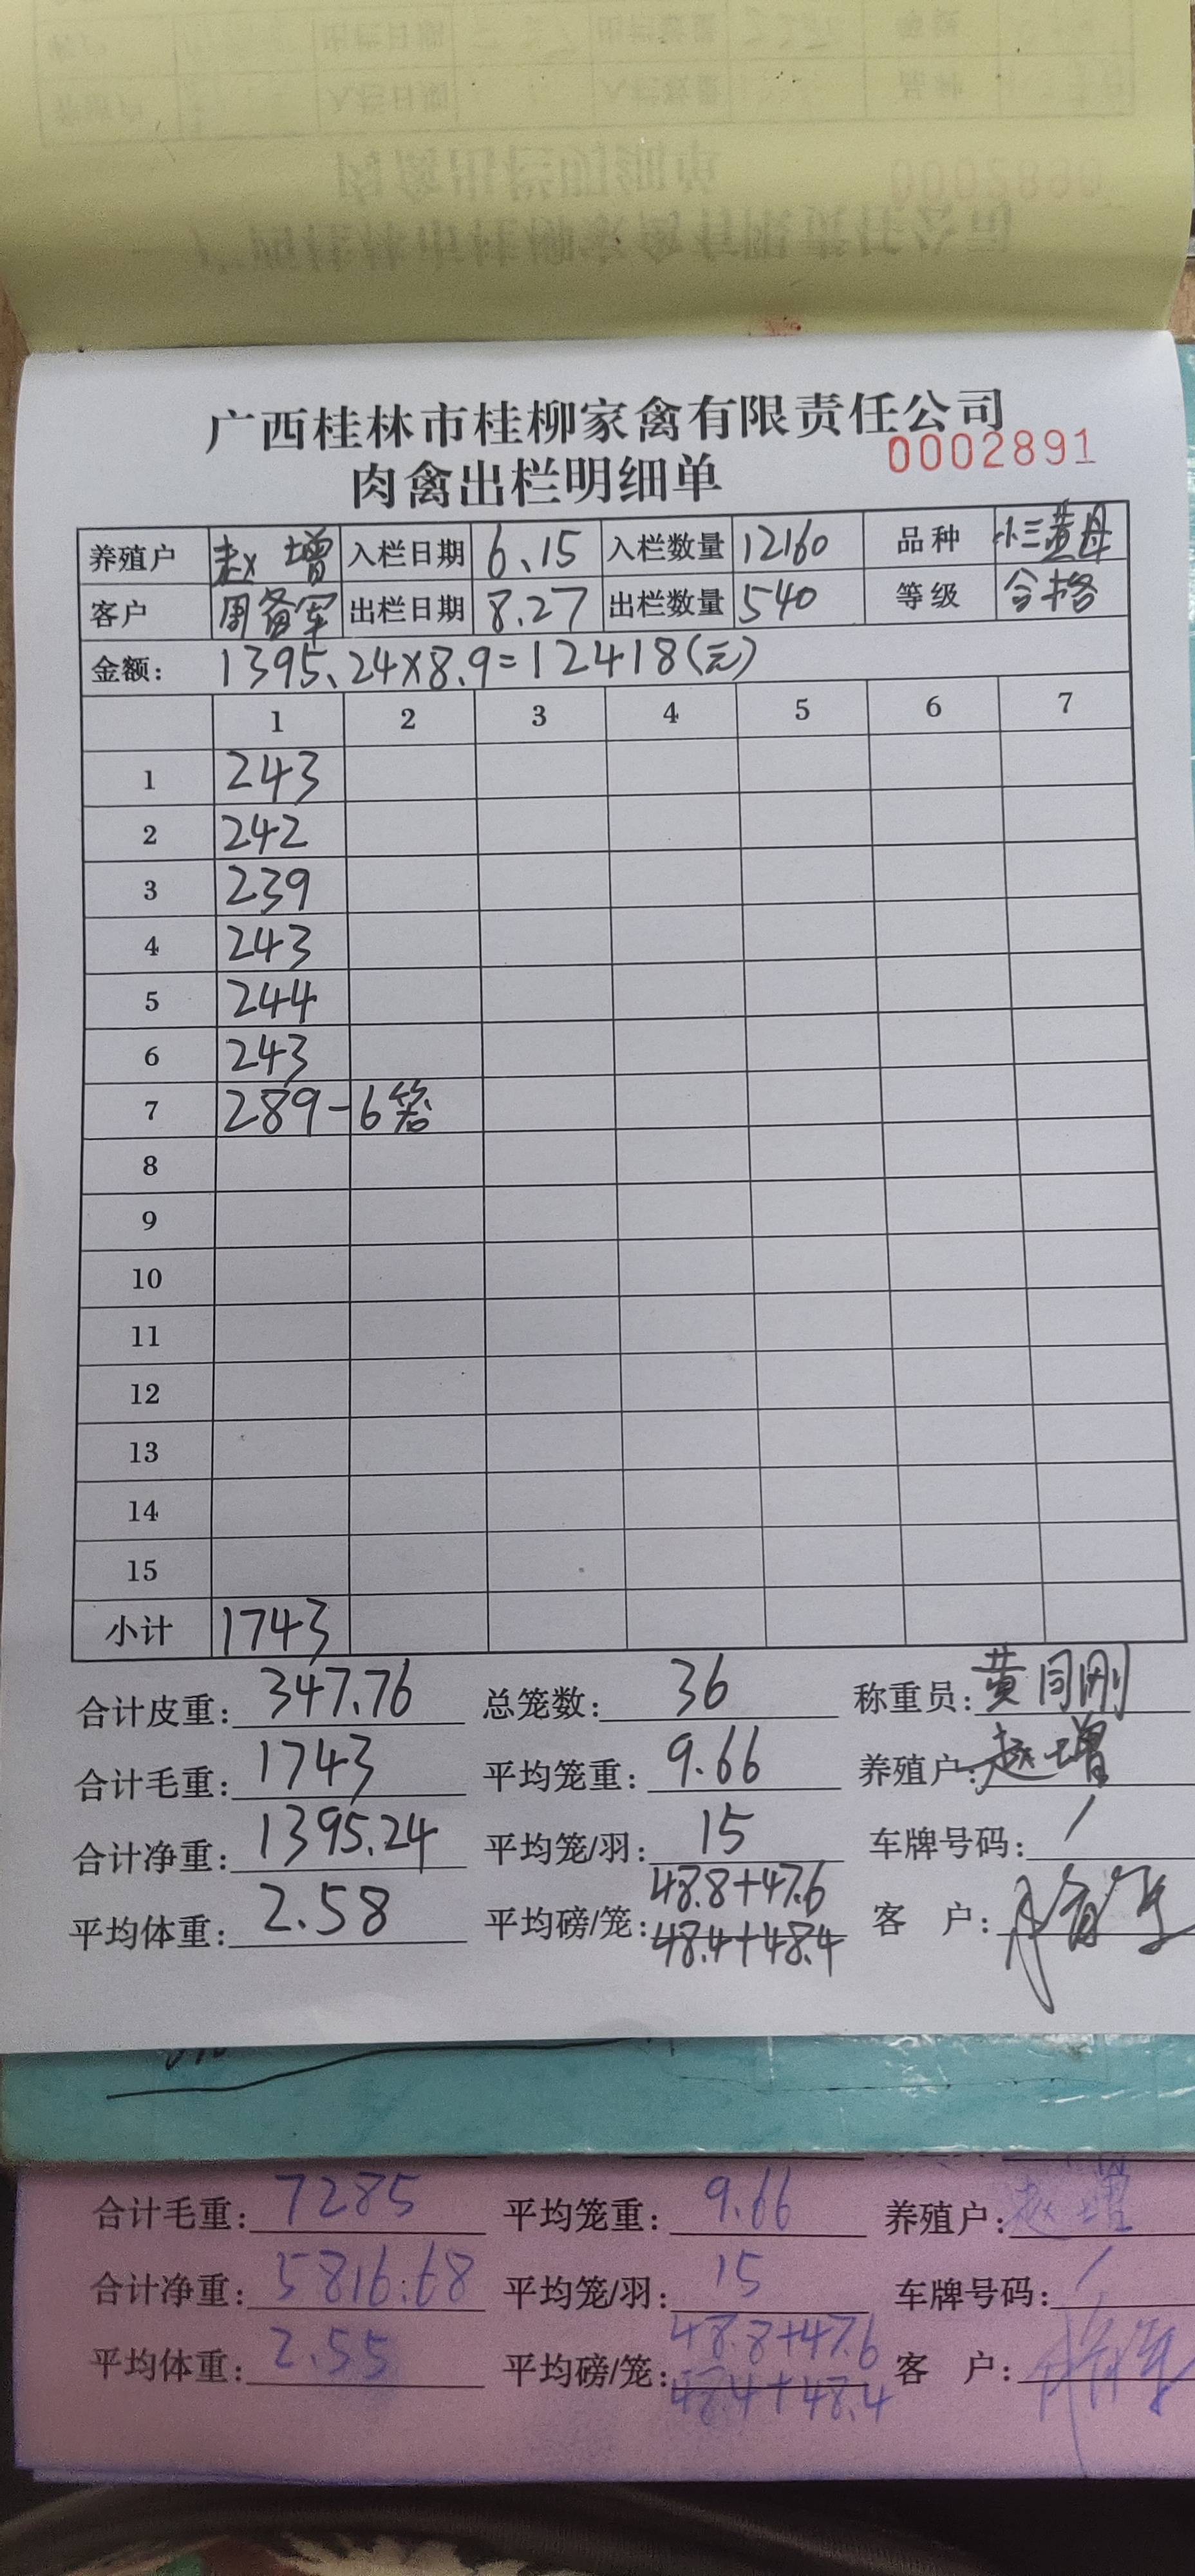 广西桂林市桂柳家禽有限责任公司
肉禽出栏明细单 0002891
养殖户 赵增 入栏日期 6.15 入栏数量 12160 品种 小三黄母
客户 周备军 出栏日期 8.27 出栏数量 540 等级 合格
金额： 1395.24×8.9=12418(元)
1 2 3 4 5 6 7
1 243
2 242
3 239
4 243
5 244
6 243
7 289-6笼
8
9
10
11
12
13
14
15
小计 1743
合计皮重： 347.76 总笼数： 36 称重员： 黄同刚
合计毛重： 1743 平均笼重： 9.66 养殖户： 赵增
合计净重： 1395.24 平均笼/羽： 15 车牌号码： /
平均体重： 2.58 平均磅/笼： 48.8+47.6 客 户：
48.4+48.4
合计毛重： 7285 平均笼重： 9.66 养殖户： 赵增
合计净重： 5816.68 平均笼/羽： 15 车牌号码： /
平均体重： 2.55 平均磅/笼： 48.8+47.6 客 户：
48.4+48.4